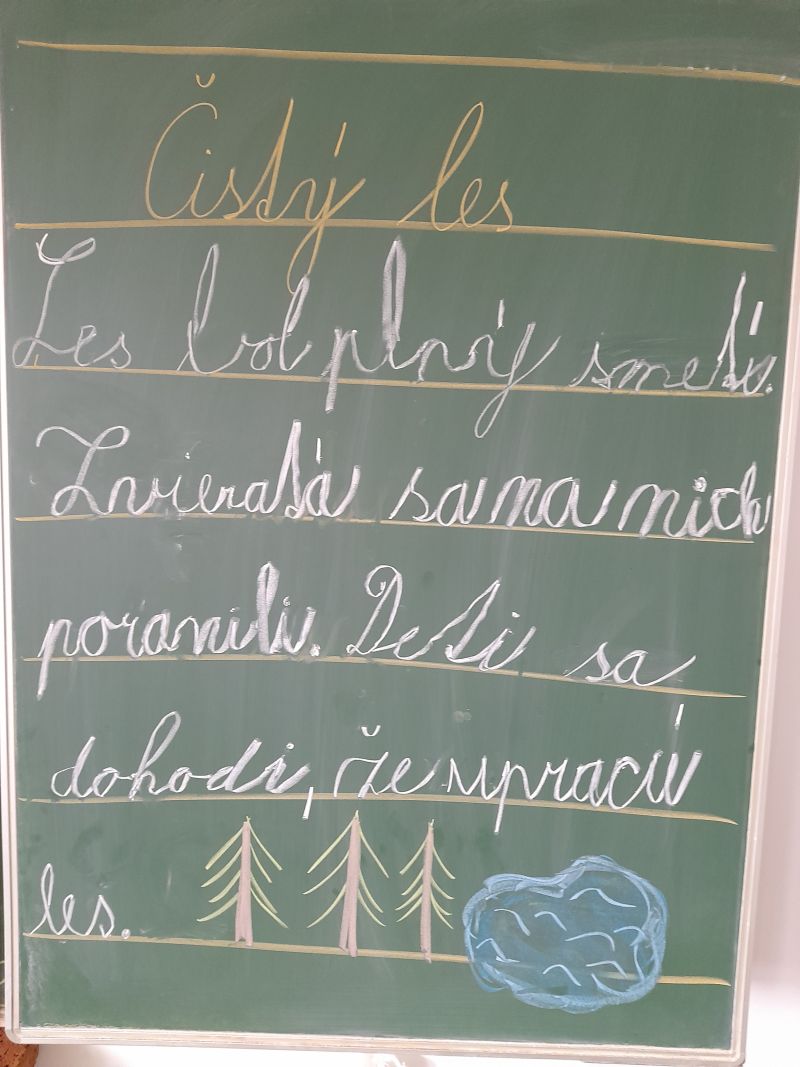 Čistý les
Les bol plný smetí.
Zvieratá sa na nich
poranili. Deti sa
dohodi, že upracú
les.